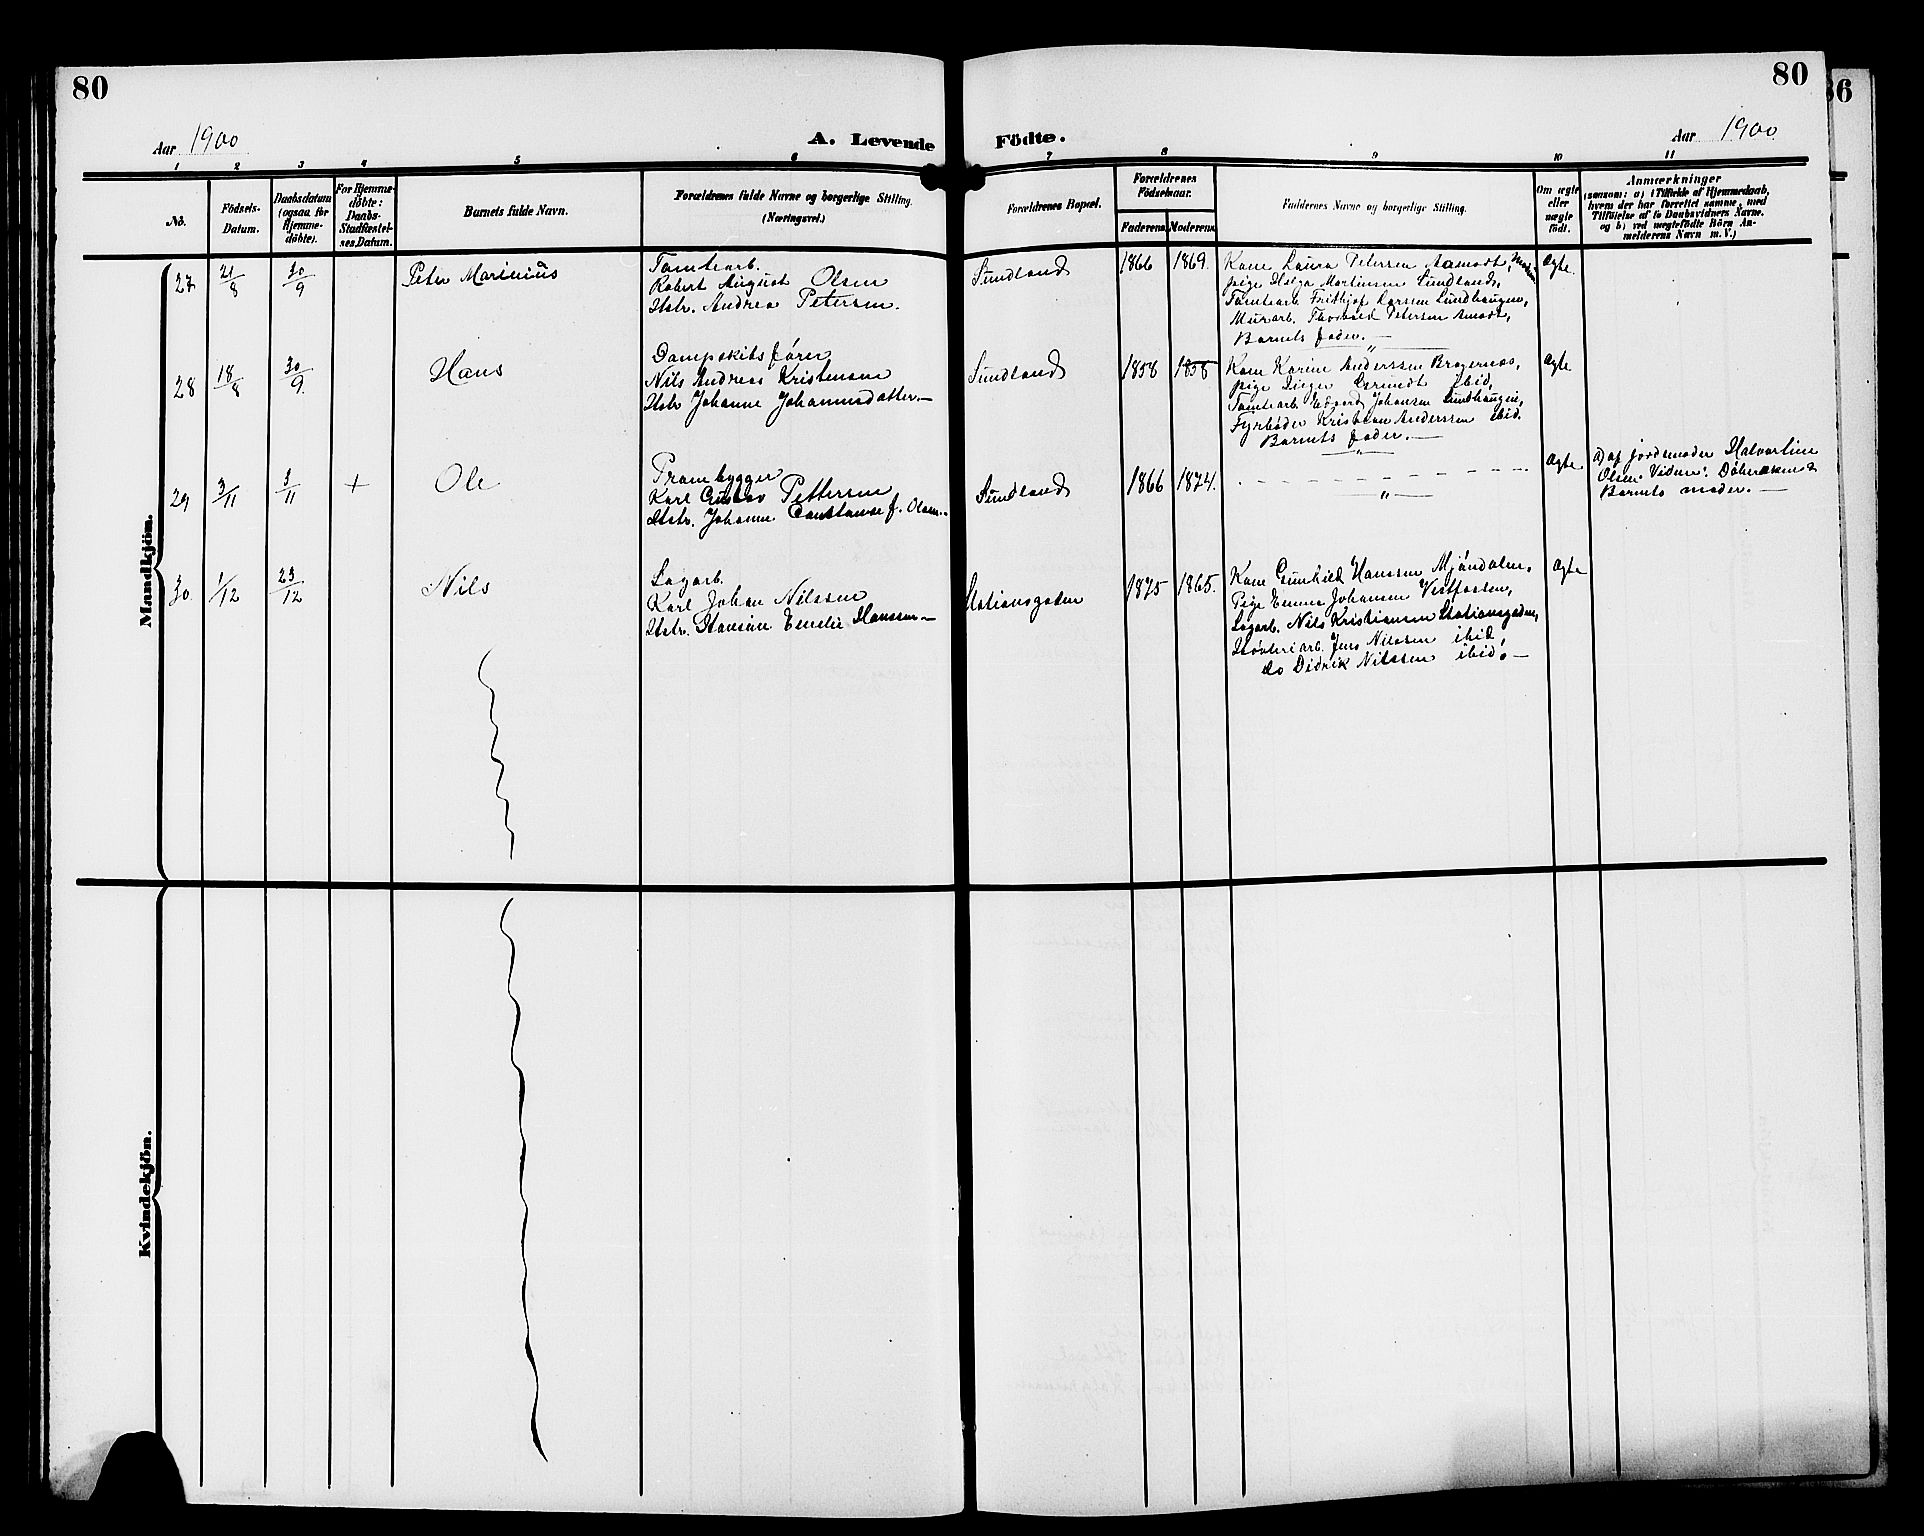 80
80
86
Aar 1900
A. Levende
Födte.
Aar 1900
1 2 3 4 5 6 7 8 9 10 11
No.
Födsels-
Datum.
Daabsdatum
(ogsaa for
Hjemme-
döbte).
For Hjemme-
döbte:
Daabs-
Stadfæstel-
ses Datum.
Barnets fulde Navn.
Forældrenes fulde Navne og borgerlige Stilling.
(Næringsvei.)
Forældrenes Bopæl.
Forældrenes
Födselsaar.
Faderens.
Moderens.
Faddernes Navne og borgerlige Stilling.
Om ægte
eller
uægte
født.
Anmærkninger
(saasom: a) i Tilfælde af Hjemmedaab,
hvem der har forrettet samme, med
Tilföielse af to Daabsvidners Navne,
og b) ved uægtefödte Börn An-
melderens Navn m. V.)
Mandkjön.
27 21/8 30/9
Peter Marinius
Tomtearb.
Robert August Olsen
Hstr. Andrea Petersen.
Sundland
1866 1869.
Kone Laura Petersen Aamodt,
pige Helga Martinsen Sundland,
Tomtearb Frithjof Larsen Sundhaugen,
Murarb. Thorvald Petersen Amodt,
Barnets fader.
Ægte.
28 18/8 30/9
Hans
Dampskibsfører
Nils Andreas Kristensen
Hstr Johanne Johannesdatter.
Sundland
1858 1858
Kone Karine Anderssen Bragernes,
pige Inger ibid,
Tomtearb. Edvard Johansen Sundhaugen,
Fyrbøder Kristian Anderssen ibid.
Barnets fader.
Ægte
29 3/11 3/11 +
Ole
Prambygger
Karl Gustav Pettersen
Hstr. Johanne Constanse f. Olsen.
Sundland
1866 1874.
"
Ægte
a) af jordemoder Halvardine
Olsen. Vidner:
Barnets moder.
30 1/12 23/12
Nils
Sagarb.
Karl Johan Nilssen
Hstr. Hansine Emelie Hanssen
Stationsgaden
1875 1865.
Kone Gunhild Hanssen Mjøndalen,
Pige Emma Johansen Vestfossen,
Sagarb. Nils Kristiansen Stationsgaden,
Høvleriarb. Jens Nilssen ibid,
do Didrik Nilssen ibid.
Ægte
Kvindekjön.